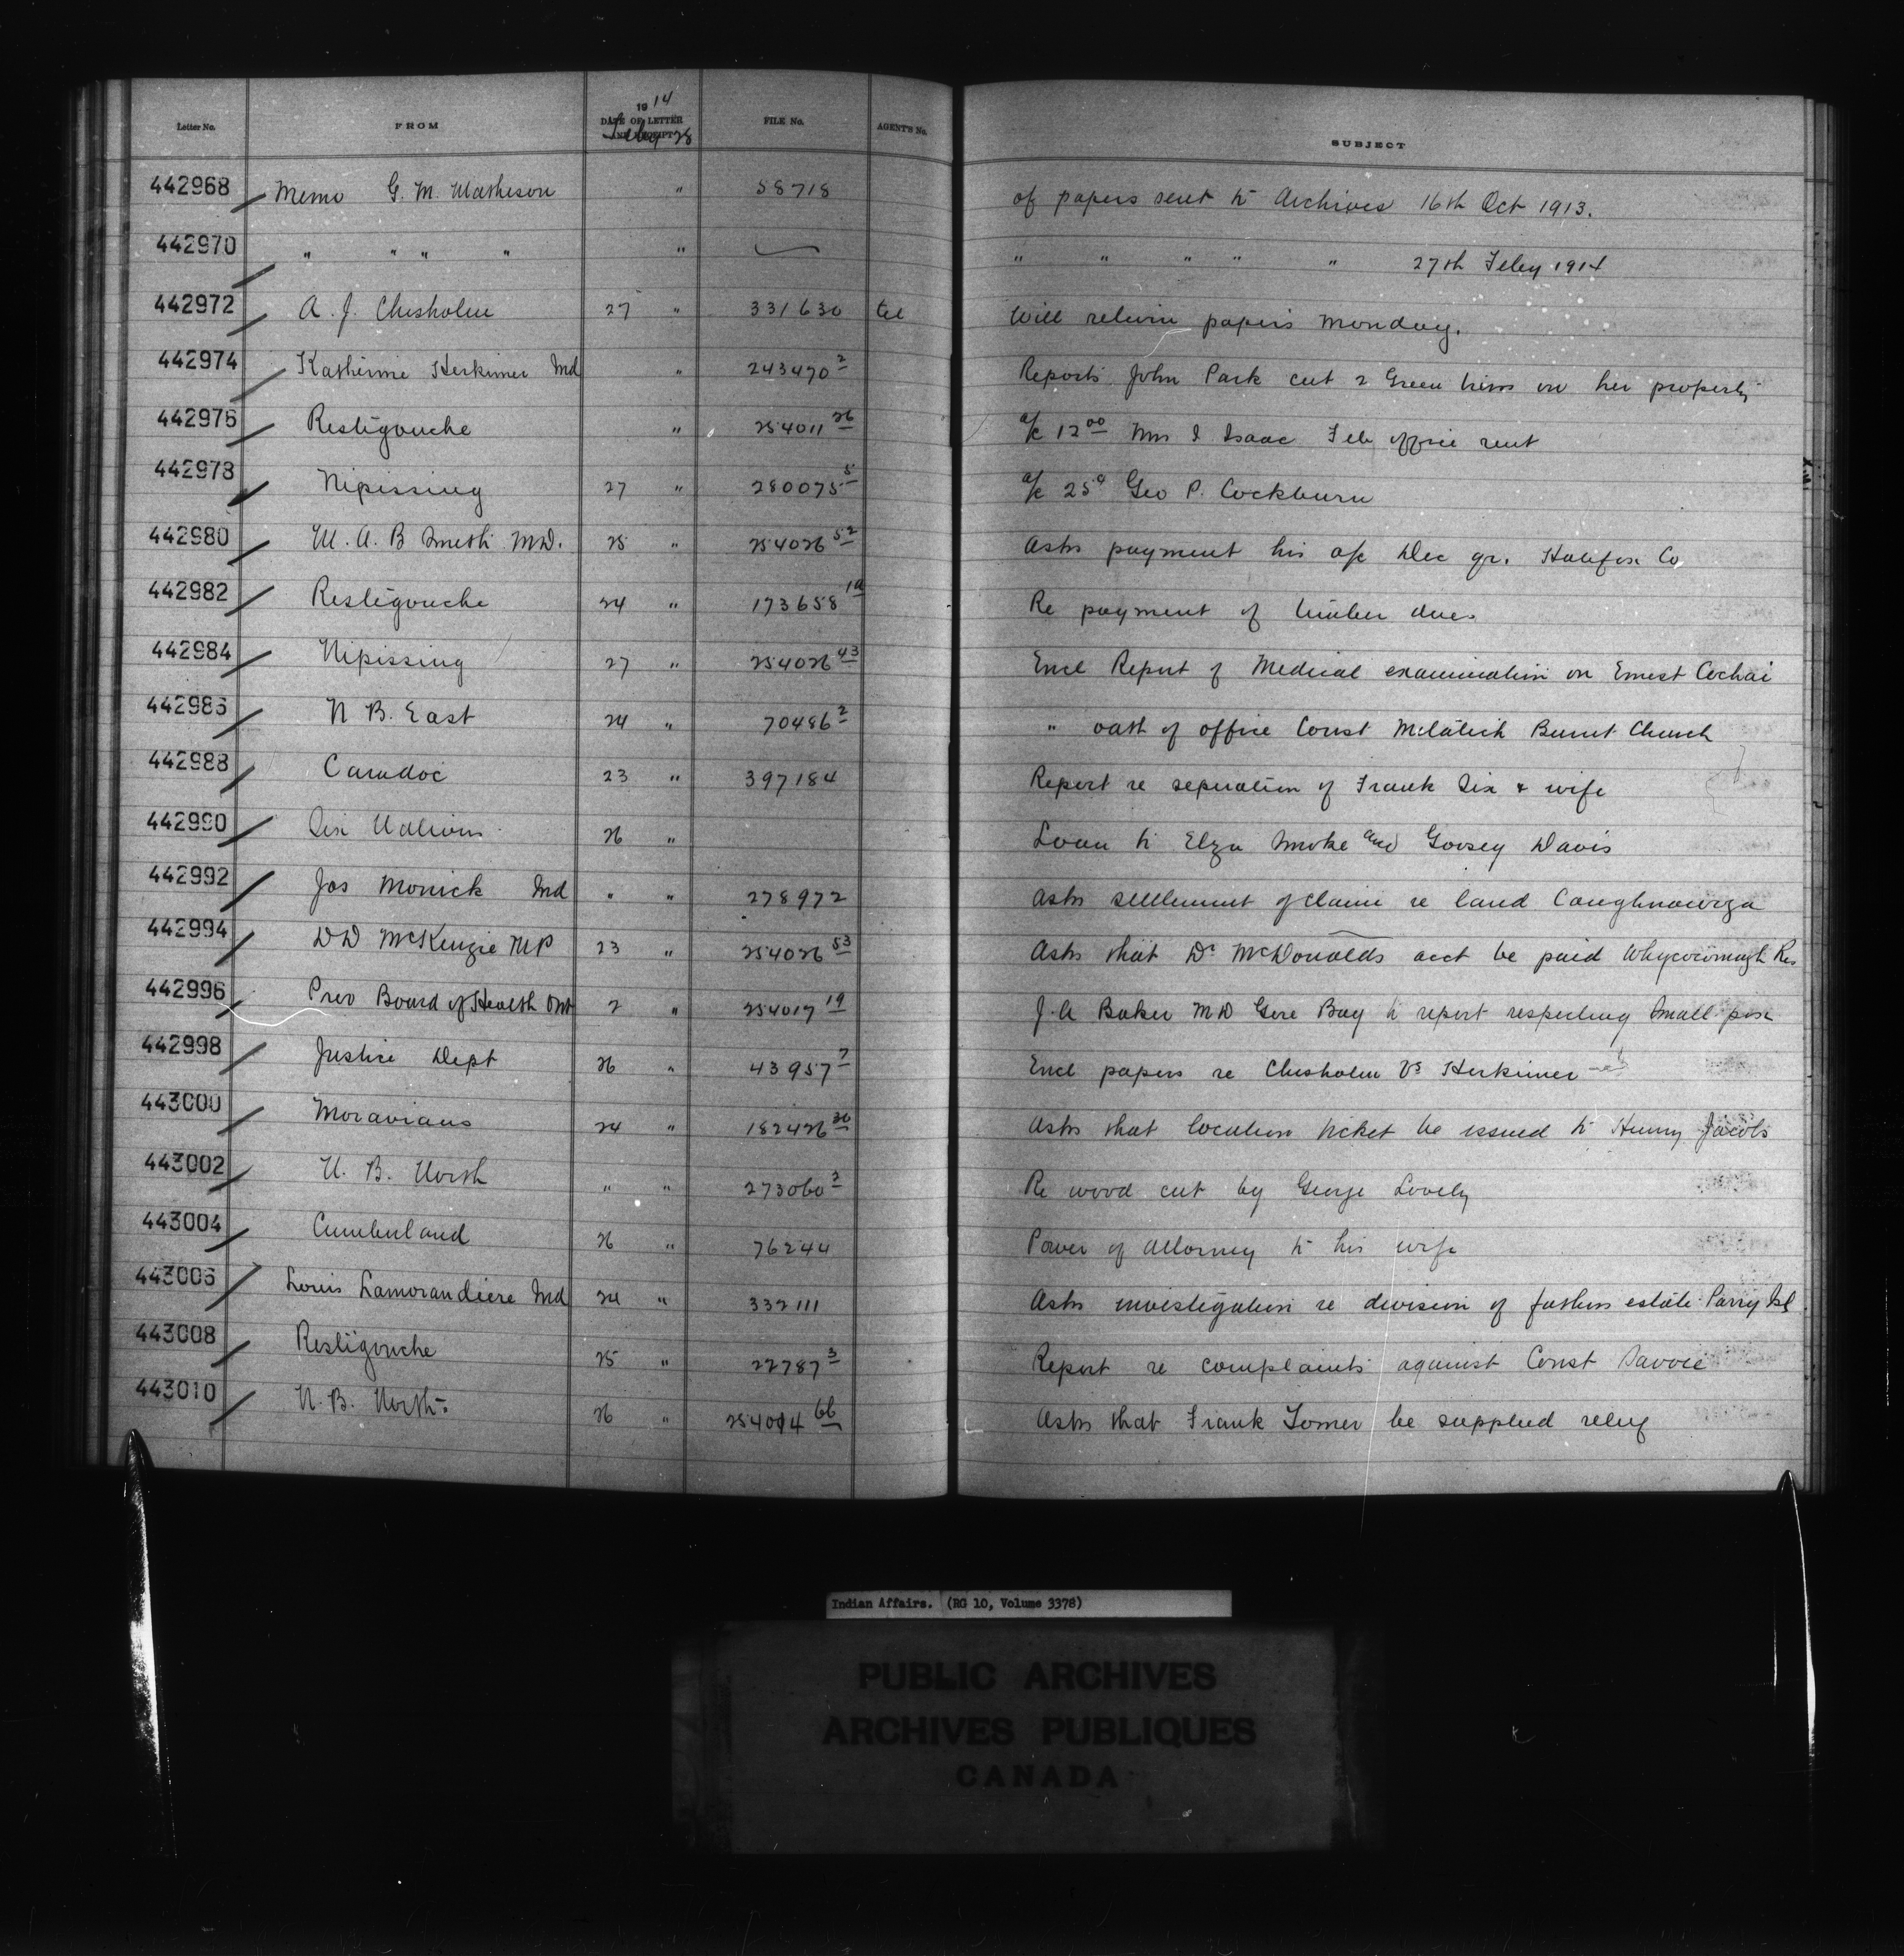 Letter No. FROM 1914 DATE OF LETTER AND RECEIPT FILE No. AGENT'S No. SUBJECT
Feby 28
442968 Memo G. M. Matheson " 58718 of papers sent to Archives 16th Oct 1913.
442970 " " " " " " " " " " 27th Feby 1914
442972 A. J. Chisholm 27 " 331630 tel Will return papers Monday.
442974 Katherine Herkimer Ind " 243470 2 Reports John Park cut 2 Green trees on her property
442976 Restigouche " 254011 26 a/c 12 00 Mrs I Isaac Feb office rent
442978 Nipissing 27 " 280075 5 a/c 25 Geo P. Cockburn
442980 M. A. B Smith M.D. 25 " 254026 52 Asks payment his a/c Dec qr. Halifax Co
442982 Restigouche 24 " 173658 1a Re payment of timber dues
442984 Nipissing 27 " 254026 43 Encl Report of Medical examination on Ernest Cochai
442986 N B. East 24 " 70486 2 " oath of office Const Burnt Church
442988 Caradoc 23 " 397184 Report re seperation of Frank Six & wife
442990 Six Nations 26 " Loan to Elza Smoke and Goosey Davis
442992 Jos Monick Ind " " 278972 Asks settlement of claim re land Caughnawaga
442994 D D McKenzie MP 23 " 254026 53 Asks that Dr McDonalds acct be paid Whycocomagh Res
442996 Prov Board of Health Ont 2 " 254017 19 J. A Baker MD Gore Bay to report respecting Small pox
442998 Justice Dept 26 " 43957 7 Encl papers re Chisholm Vs Herkimer
443000 Moravians 24 " 182426 30 Asks that location ticket be issued to Henry Jacobs
443002 N. B. North " " 273060 3 Re wood cut by George Lovely
443004 Cumberland 26 " 76244 Power of Attorney to his wife
443006 Louis Lamorandiere Ind 24 " 332111 Asks investigation re division of fathers estate Parry Isl
443008 Restigouche 25 " 22787 3 Report re complaints against Const Savoie
443010 N. B. North 26 " 254014 66 Asks that Frank Tomer be supplied relief
Indian Affairs. (RG 10, Volume 3378)
PUBLIC ARCHIVES
ARCHIVES PUBLIQUES
CANADA